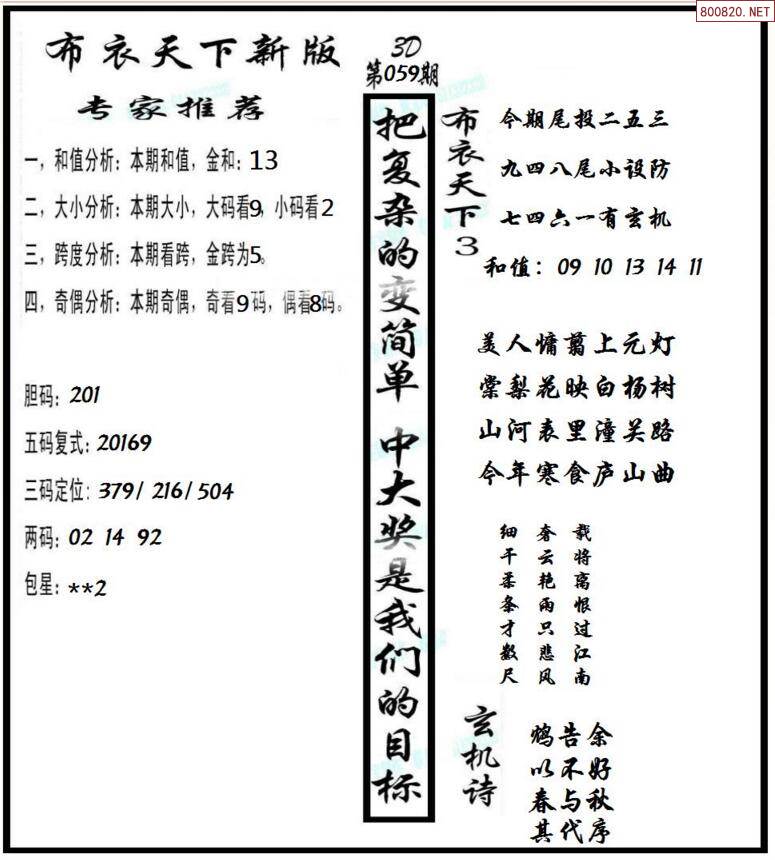 800820.NET
布衣天下新版
专家推荐
一，和值分析：本期和值，金和：13
二，大小分析：本期大小，大码看9，小码看2
三，跨度分析：本期看跨，金跨为5。
四，奇偶分析：本期奇偶，奇看9码，偶看8码。
胆码：201
五码复式：20169
三码定位：379/ 216/ 504
两码：02 14 92
包星：**2
3D
第059期
把复杂的变简单 中大奖是我们的目标
布衣天下3
今期尾投二五三
九四八尾小设防
七四六一有玄机
和值：09 10 13 14 11
美人慵翦上元灯
棠梨花映白杨树
山河表里潼关路
今年寒食庐山曲
细干柔条才数尺
奢云艳雨只悲风
载将离恨过江南
玄机诗
鸩告余
以不好
春与秋
其代序